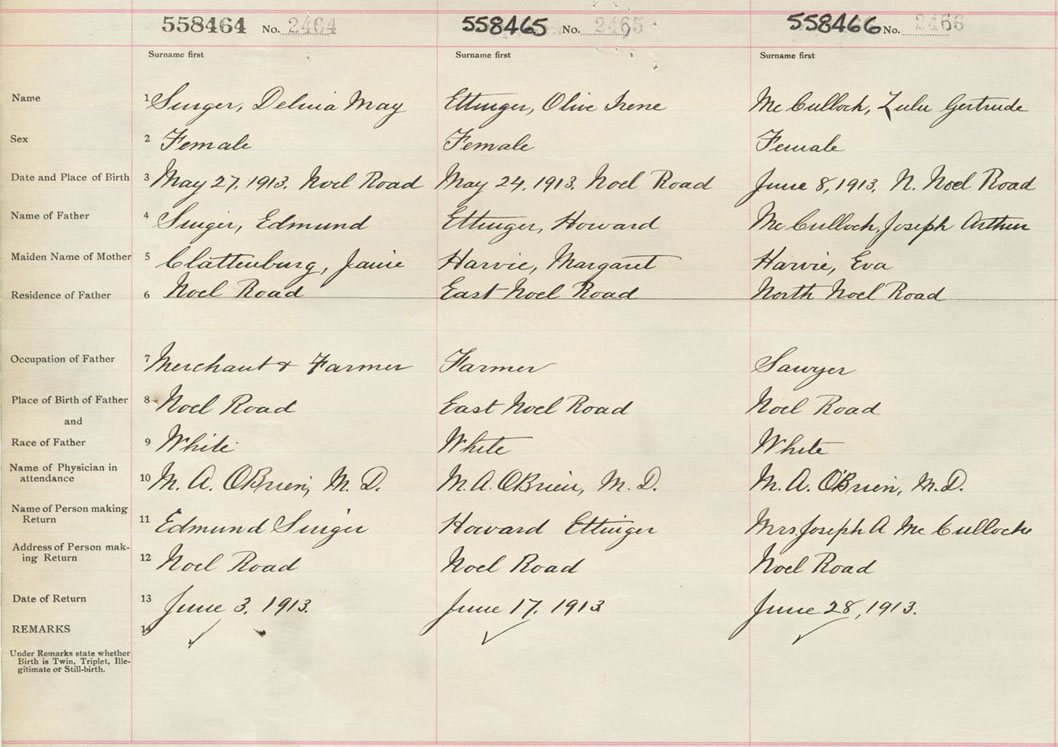 558464 No. 2464 558465 No. 2465 558466 No. 2466
Surname first Surname first Surname first
Name 1 Singer, Delina May Ettinger, Olive Irene Mc Culloch, Lulu Gertrude
Sex 2 Female Female Female
Date and Place of Birth 3 May 27, 1913. Noel Road May 24, 1913. Noel Road June 8, 1913, N. Noel Road
Name of Father 4 Singer, Edmund Ettinger, Howard Mc Culloch, Joseph Arthur
Maiden Name of Mother 5 Clattenburg, Janie Harvie, Margaret Harvie, Eva
Residence of Father 6 Noel Road East Noel Road North Noel Road
Occupation of Father 7 Merchant & Farmer Farmer Sawyer
Place of Birth of Father 8 Noel Road East Noel Road Noel Road
and
Race of Father 9 White White White
Name of Physician in
attendance 10 M. A. O'Brien, M. D. M. A. O'Brien, M. D. M. A. O'Brien, M. D.
Name of Person making
Return 11 Edmund Singer Howard Ettinger Mrs Joseph A Mc Culloch
Address of Person mak-
ing Return 12 Noel Road Noel Road Noel Road
Date of Return 13 June 3, 1913. June 17, 1913 June 28, 1913.
REMARKS 14
Under Remarks state whether
Birth is Twin, Triplet, Ille-
gitimate or Still-birth.